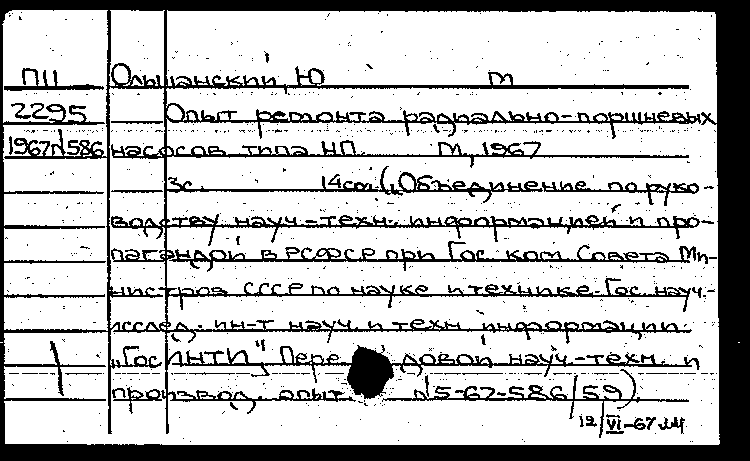 П11 Ольшанский, Ю М
2295 Опыт ремонта радиально-поршневых
1967/586 насосов типа НП. М, 1967
3с. 14см („Объединение по руко-
водству науч.-техн. информацией и про-
пагандой в РСФСР при Гос. ком. Совета Ми-
нистров СССР по науке и технике. Гос. науч.-
исслед. ин-т науч. и техн. информации.
„ГосИНТИ", Передовой науч.-техн. и
производ. опыт. 5-67-586/59).
12/VI-67